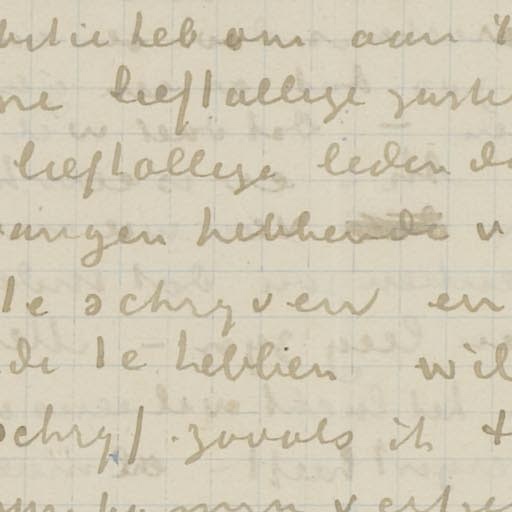 heb om aan
lieftallige zuste
lieftallige leden
angen hebbende
te schryven en
de te hebben wil
schryf zooals ik